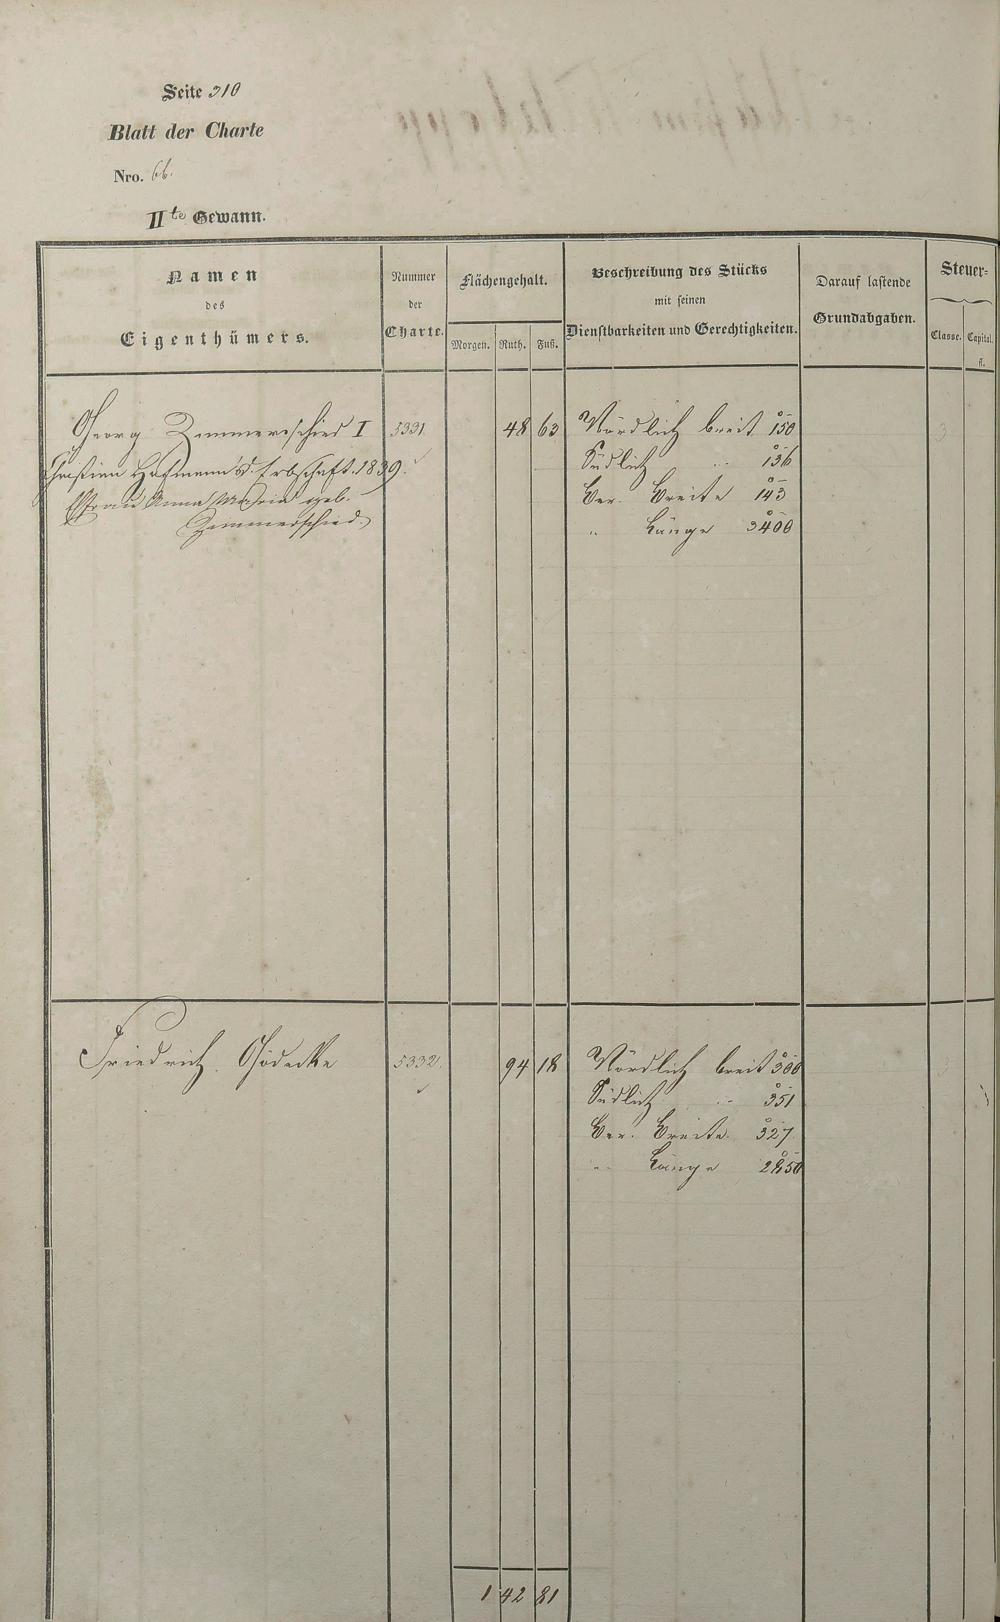 Seite 310
Blatt der Charte
Nro. 66.
IIte Gewann.
Namen
des
Eigenthümers.
Nummer
der
Charte.
Flächengehalt.
Morgen. Ruth. Fuß.
Beschreibung des Stücks
mit seinen
Dienstbarkeiten und Gerechtigkeiten.
Darauf lastende
Grundabgaben.
Steuer-
Classe. Capital.
fl.
Georg Zimmerschied I 5331 48 63 Nördlich breit 150 3
Christian Hofmann's d. Erbschaft. 1839. Südlich " 136
Ehefrau Anna Maria geb. Ver. Breite 143
Zimmerschied. " Länge 3400
Friedrich Gödecke 5332. 94 18 Nördlich breit 300
Südlich " 351
Ver. Breite 327
" Länge 2850
1 42 81